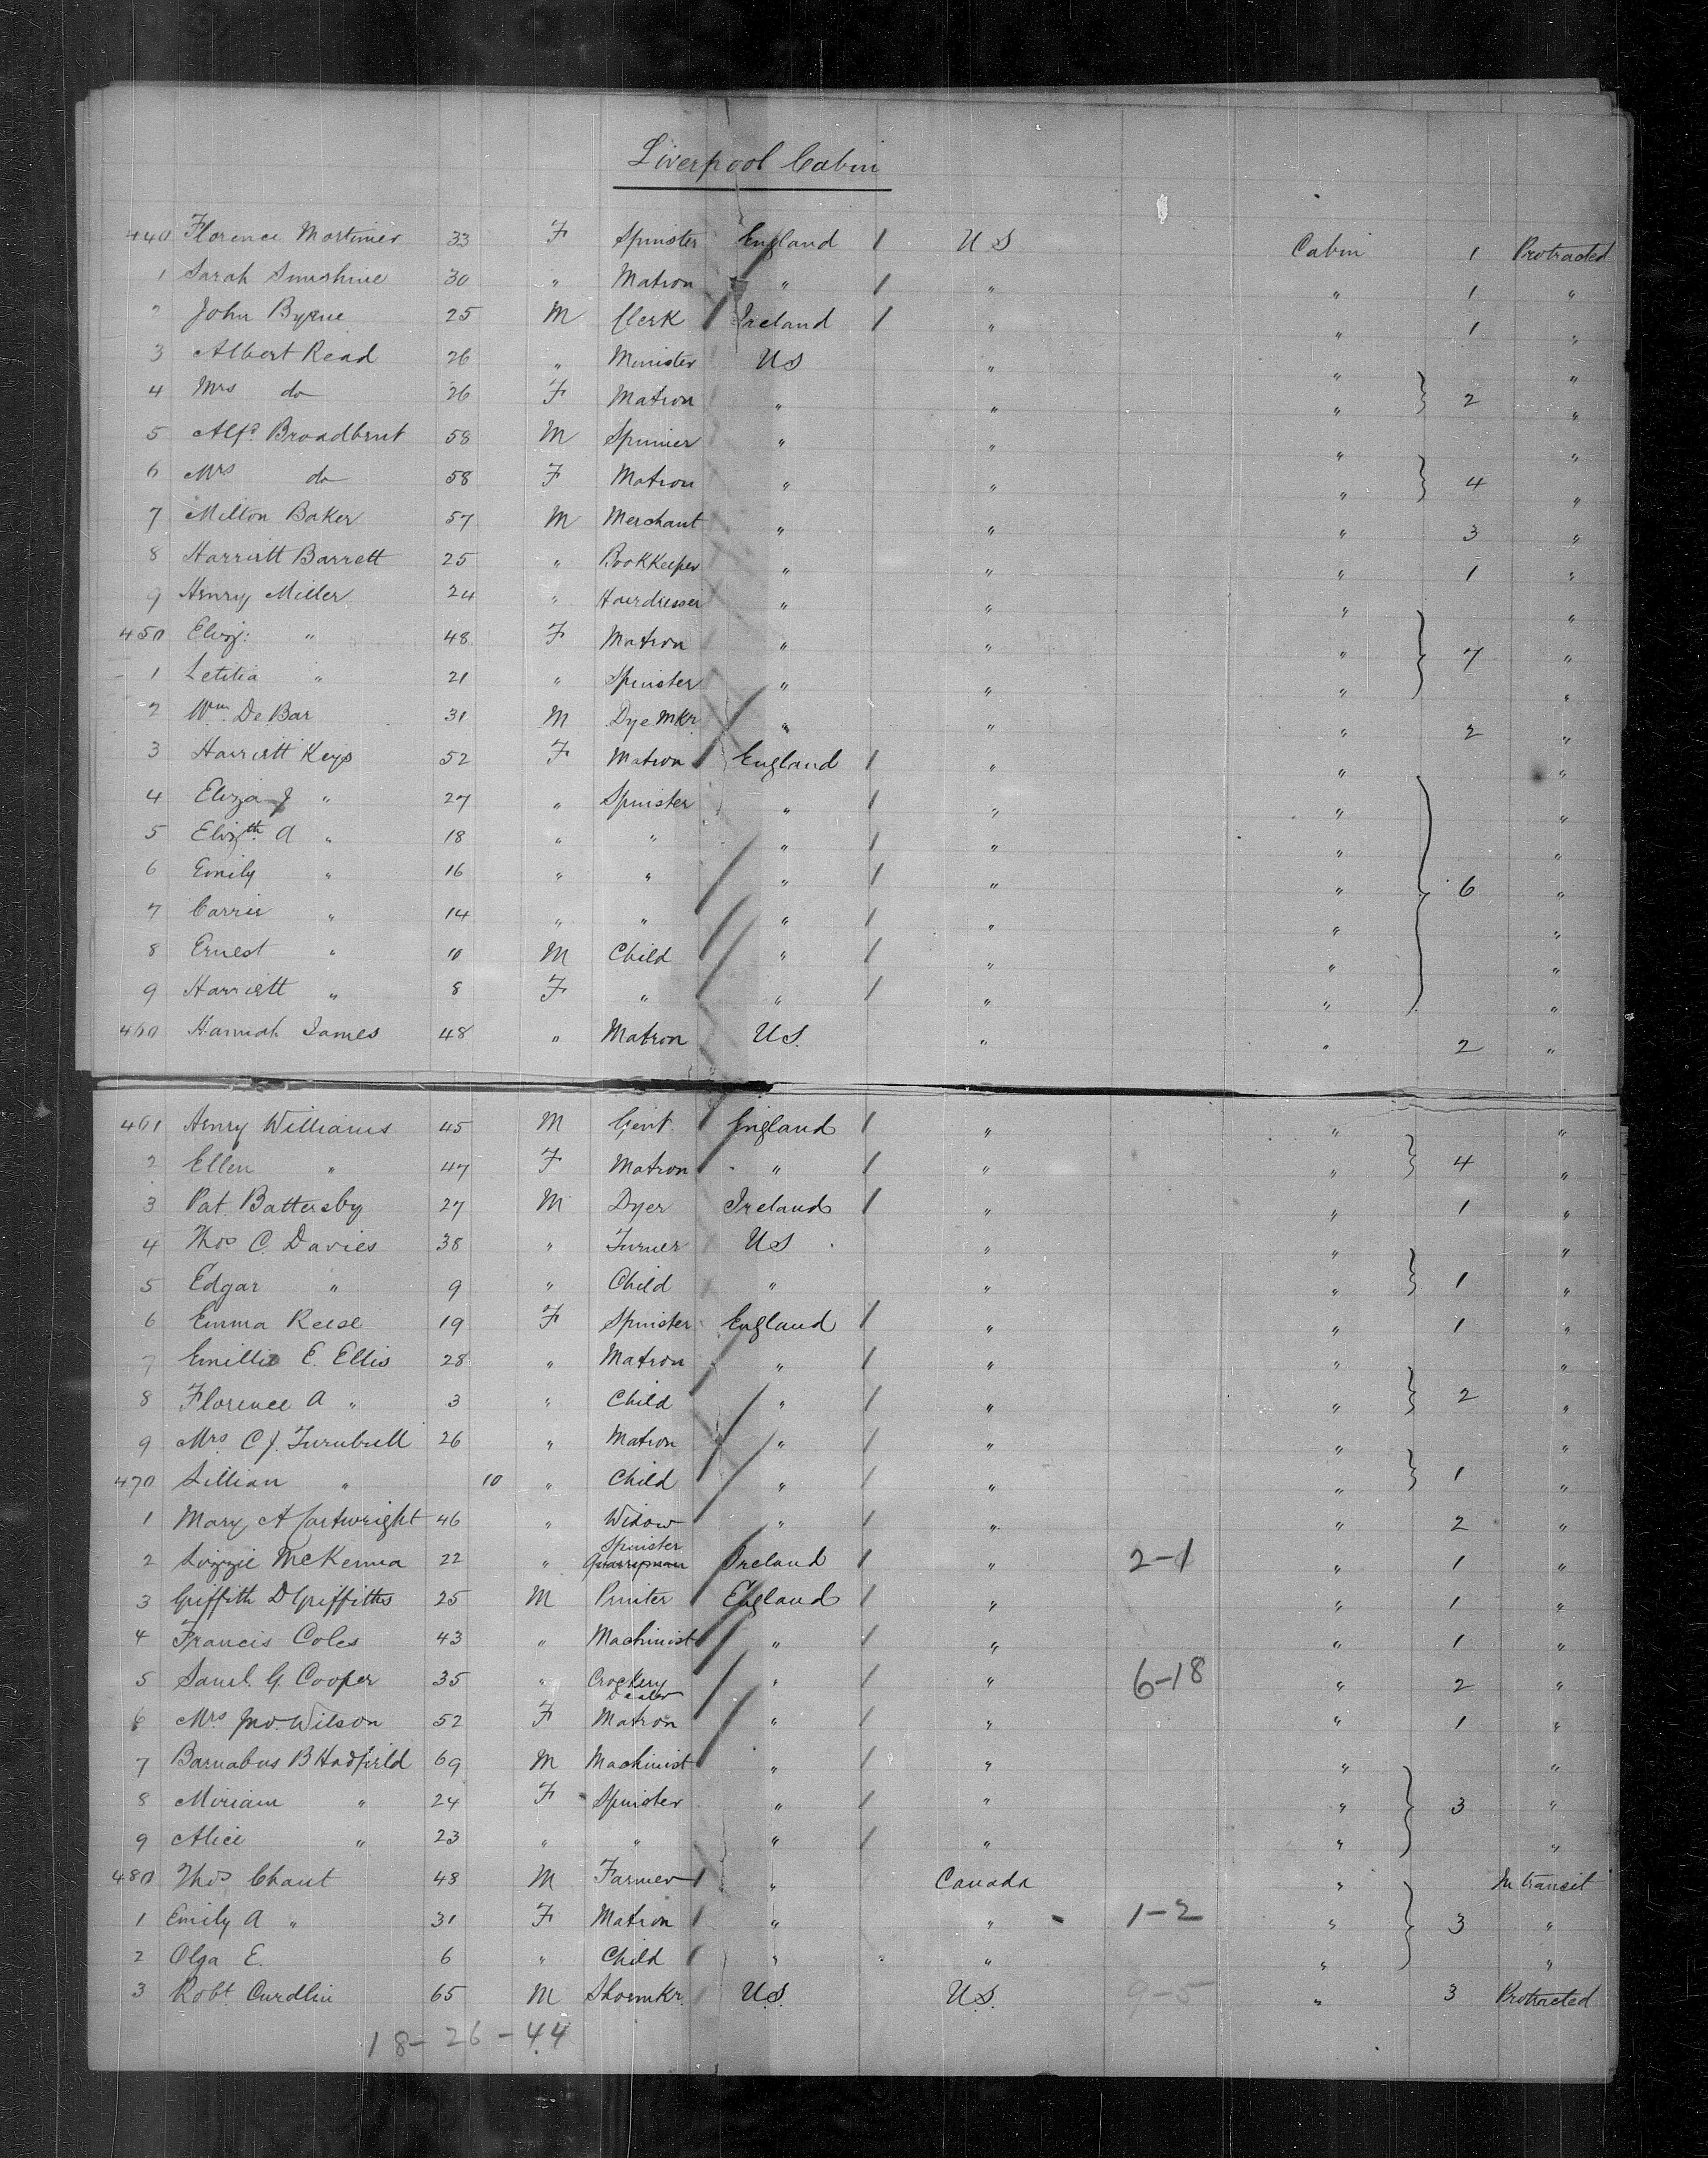 Liverpool Cabin
440 Florence Mortimer 33 F Spinster England / U S Cabin 1 Protracted
1 Sarah Sunshine 30 " Matron " / " " 1 "
2 John Byrne 25 M Clerk / Ireland / " " 1 "
3 Albert Read 26 " Minister U S " " "
4 Mrs do 26 F Matron " " " } 2 "
5 Alfd Broadbent 58 M Spinner " " " "
6 Mrs do 58 F Matron " " " } 4 "
7 Milton Baker 57 M Merchant " " " 3 "
8 Harriett Barrett 25 " Bookkeeper " " " 1 "
9 Henry Miller 24 " Hairdresser " " " "
450 Eliz: " 48 F Matron " " " } 7 "
1 Letitia " 21 " Spinster " " " "
2 Wm De Bar 31 M Dye Mkr " " " 2 "
3 Harriett Keys 52 F Matron / England / " " "
4 Eliza J " 27 " Spinster " / " " "
5 Elizth A " 18 " " " / " " "
6 Emily " 16 " " / " / " " } 6 "
7 Carrie " 14 " " / " / " " "
8 Ernest " 10 M Child / " / " " "
9 Harriett " 8 F " " / " " "
460 Hannah James 48 " Matron U S. " " 2 "
461 Henry Williams 45 M Gent. / England / " " "
2 Ellen " 47 F Matron " / " " } 4 "
3 Pat. Battersby 27 M Dyer Ireland / " " 1 "
4 Thos C. Davies 38 " Turner U S " " "
5 Edgar " 9 " Child " " " } 1 "
6 Emma Reese 19 F Spinster England / " " 1 "
7 Emillie E. Ellis 28 " Matron / " / " " "
8 Florence A " 3 " Child / " / " " } 2 "
9 Mrs C J. Turnbull 26 " Matron / " / " " "
470 Lillian " 10 " Child / " / " " } 1 "
1 Mary A Cartwright 46 " Widow " / " " 2 "
Spinster
2 Lizzie McKenna 22 " Quarryman Ireland / " 2-1 " 1 "
3 Griffith D Griffiths 25 M Printer England / " " 1 "
4 Francis Coles 43 " Machinist / " / " " 1 "
5 Saml. G. Cooper 35 " Crockery / " / " 6-18 " 2 "
Dealer
6 Mrs Jno. Wilson 52 F Matron / " / " " 1 "
7 Barnabus B Hadfield 69 M Machinist " / " " "
8 Miriam " 24 F Spinster " / " " } 3 "
9 Alice " 23 " " " / " " "
480 Thos Chant 48 M Farmer / " Canada " In transit
1 Emily A " 31 F Matron / " " 1-2 " } 3 "
2 Olga E. 6 " Child / " " " "
3 Robt. Curdlin 65 M Shoemkr. / U.S. U.S. 9-5 " 3 Protracted
18-26-44